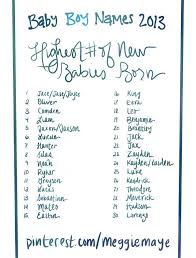 Baby Boy Names 2013
Highest # of New
Babies Born
1 Jace/Jase/Jayce
2 Oliver
3 Camden
4 Liam
5 Jaxon/Jaxson
6
7 Hunter
8 Silas
9 Noah
10 Ryker
11 Grayson
12 Lucas
13 Sebastian
14
15 Easton
King
Ezra
Leo
Benjamin
Brantley
Jax
Zayden
Kayden/
Luke
Theodore
Maverick
Hudson
30 Lorenzo
pinterest.com/meggiemaye